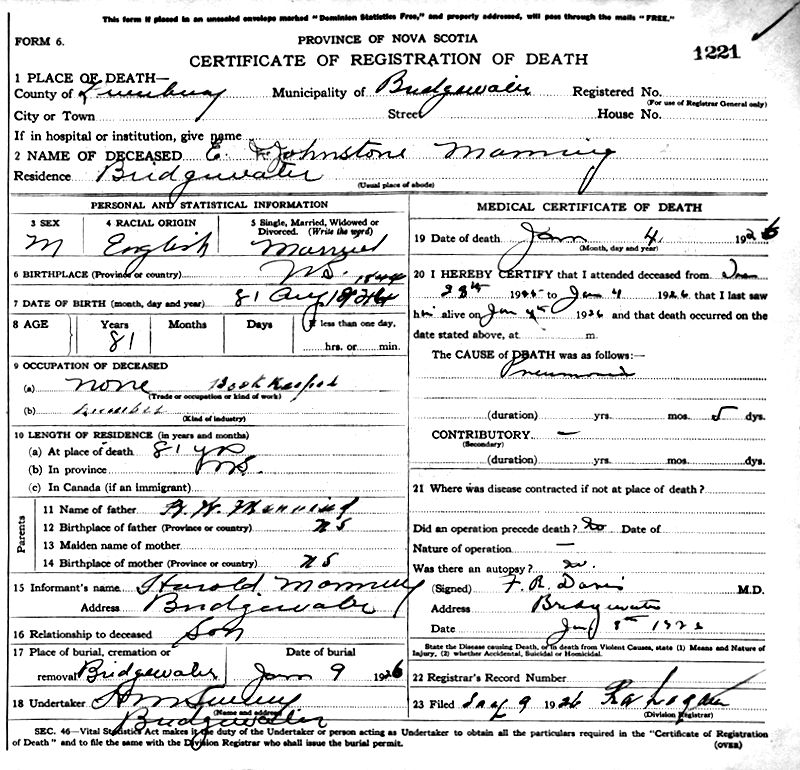 This form if placed in an unsealed envelope marked "Dominion Statistics Free," and properly addressed, will pass through the mails "FREE."
FORM 6.
PROVINCE OF NOVA SCOTIA
CERTIFICATE OF REGISTRATION OF DEATH
1221
1 PLACE OF DEATH—
County of Lunenburg Municipality of Bridgewater Registered No.
(For use of Registrar General only)
City or Town Street House No.
If in hospital or institution, give name
2 NAME OF DECEASED E. Johnstone Manning
Residence Bridgewater
(Usual place of abode)
PERSONAL AND STATISTICAL INFORMATION
3 SEX 4 RACIAL ORIGIN 5 Single, Married, Widowed or Divorced. (Write the word)
M English Married
6 BIRTHPLACE (Province or country) N.S. 1844
7 DATE OF BIRTH (month, day and year) 81 Aug
8 AGE Years Months Days If less than one day,
81 hrs. or min.
9 OCCUPATION OF DECEASED
(a) none Book Keeper
(Trade or occupation or kind of work)
(b) Lumber
(Kind of industry)
10 LENGTH OF RESIDENCE (in years and months)
(a) At place of death 81 yrs
(b) In province N.S.
(c) In Canada (if an immigrant)
Parents
11 Name of father Manning
12 Birthplace of father (Province or country) N S
13 Maiden name of mother
14 Birthplace of mother (Province or country) N S
15 Informant's name Harold Manning
Address Bridgewater
16 Relationship to deceased Son
17 Place of burial, cremation or removal Bridgewater Date of burial Jan 9 1926
18 Undertaker
(Name and address)
Bridgewater
MEDICAL CERTIFICATE OF DEATH
19 Date of death Jan 4 1926
(Month, day and year)
20 I HEREBY CERTIFY that I attended deceased from
28th 1925 to Jan 4 1926 that I last saw
him alive on Jan 4th 1926 and that death occurred on the
date stated above, at m.
The CAUSE of DEATH was as follows:—
Pneumonia
(duration) yrs. mos. 5 dys.
CONTRIBUTORY —
(Secondary)
(duration) yrs. mos. dys.
21 Where was disease contracted if not at place of death?
Did an operation precede death? No Date of
Nature of operation —
Was there an autopsy? no.
(Signed) F. R. Davis M.D.
Address Bridgewater
Date Jany 8th 1926
State the Disease causing Death, or, in death from Violent Causes, state (1) Means and Nature of
Injury, (2) whether Accidental, Suicidal or Homicidal.
22 Registrar's Record Number
23 Filed Jany 9 1926
(Division Registrar)
SEC. 46—Vital Statistics Act makes it the duty of the Undertaker or person acting as Undertaker to obtain all the particulars required in the "Certificate of Registration
of Death" and to file the same with the Division Registrar who shall issue the burial permit.
(OVER)